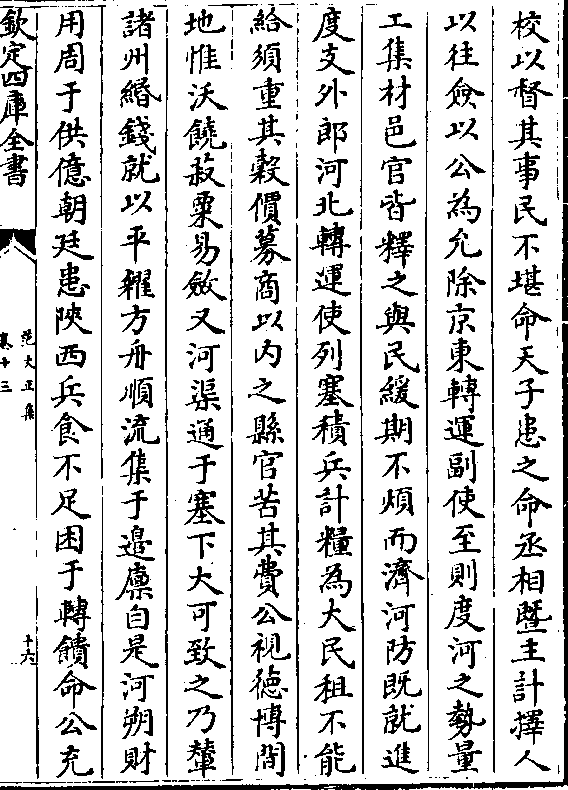 校以督其事民不堪命天子患之命丞相暨主計擇人
以往僉以公為允除京東轉運副使至則度河之勢量
工集材邑官皆釋之與民緩期不煩而濟河防既就進
度支外郎河北轉運使列塞積兵計糧為大民租不能
給須重其穀價募商以内之縣官苦其費公視徳博間
地惟沃饒菽粟易斂又河渠通于塞下大可致之乃輦
諸州緡錢就以平糴方舟順流集于邉廪自是河朔財
用周于供億朝廷患陜西兵食不足困于轉饋命公充
欽定四庫全書
范文正集
卷十三
十六